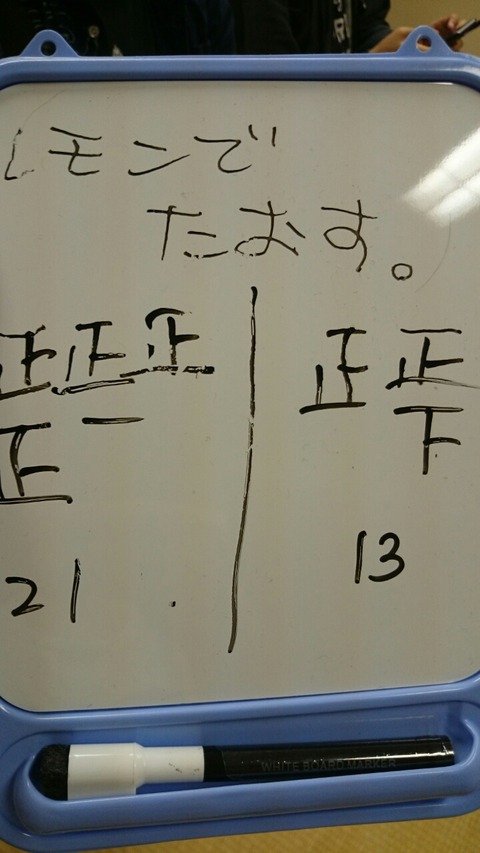 レモンで
たおす。
正正正 正正
正一 下
21 13
WHITE BOARD MARKER